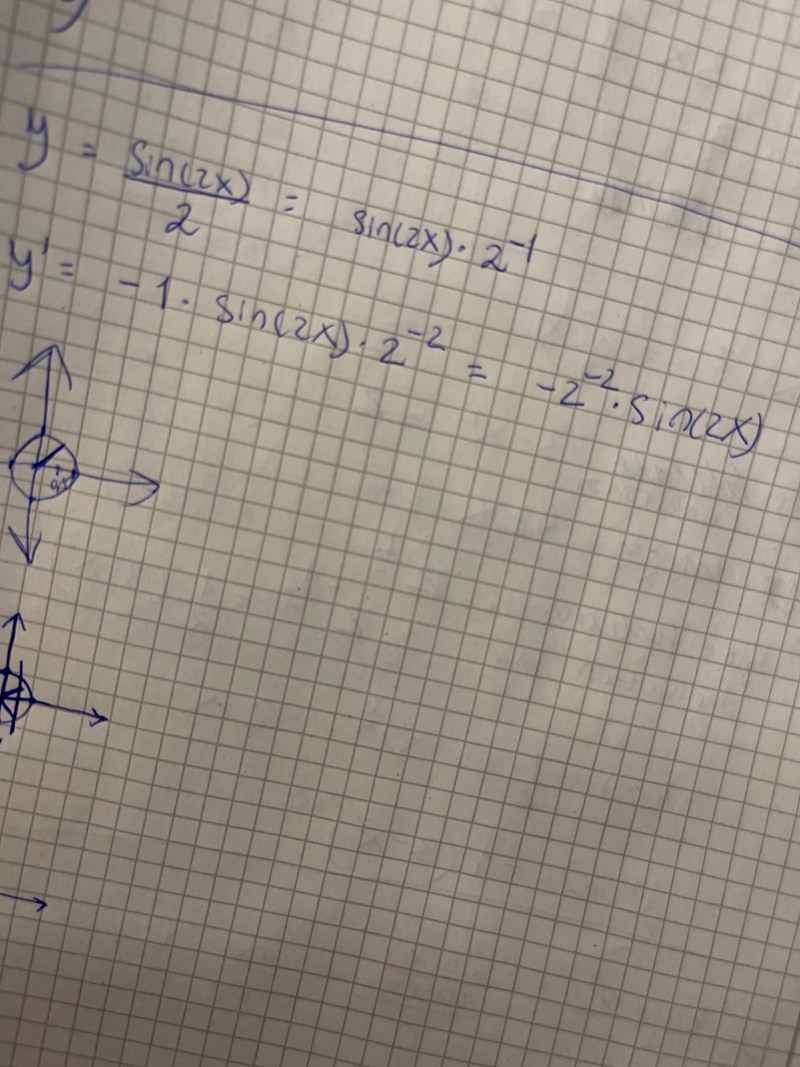 y = sin(2x)/2 = sin(2x) · 2⁻¹
y' = -1 · sin(2x) · 2⁻² = -2⁻² · sin(2x)